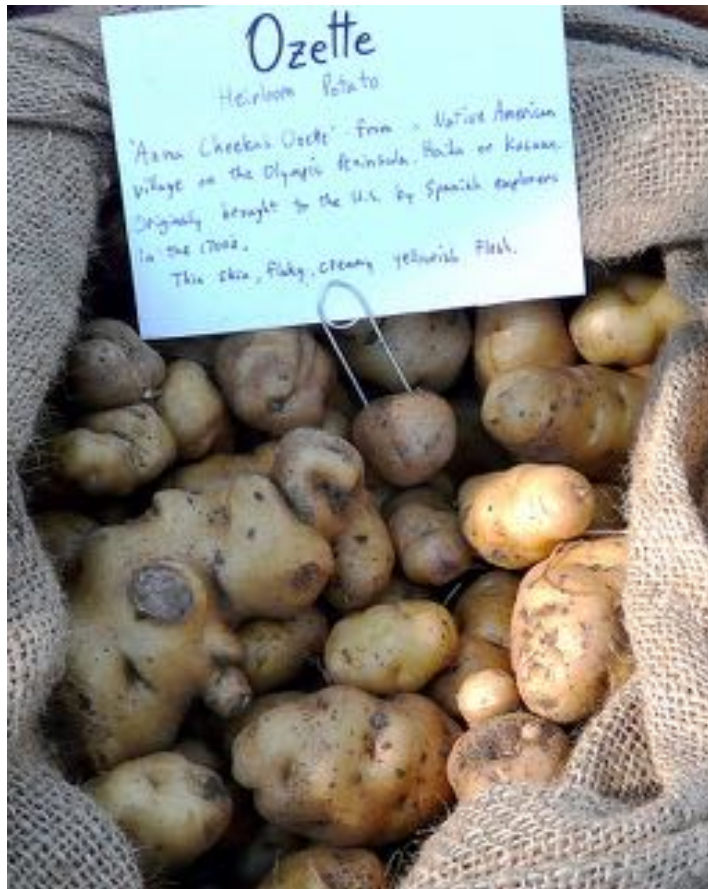 Ozette
Heirloom Potato
"Anna Cheeka's Ozette" from a Native American
village on the Olympic Peninsula. or
Originally brought to the U.S. by Spanish explorers
in the 1700s.
Thin skin, flaky, creamy yellowish flesh.